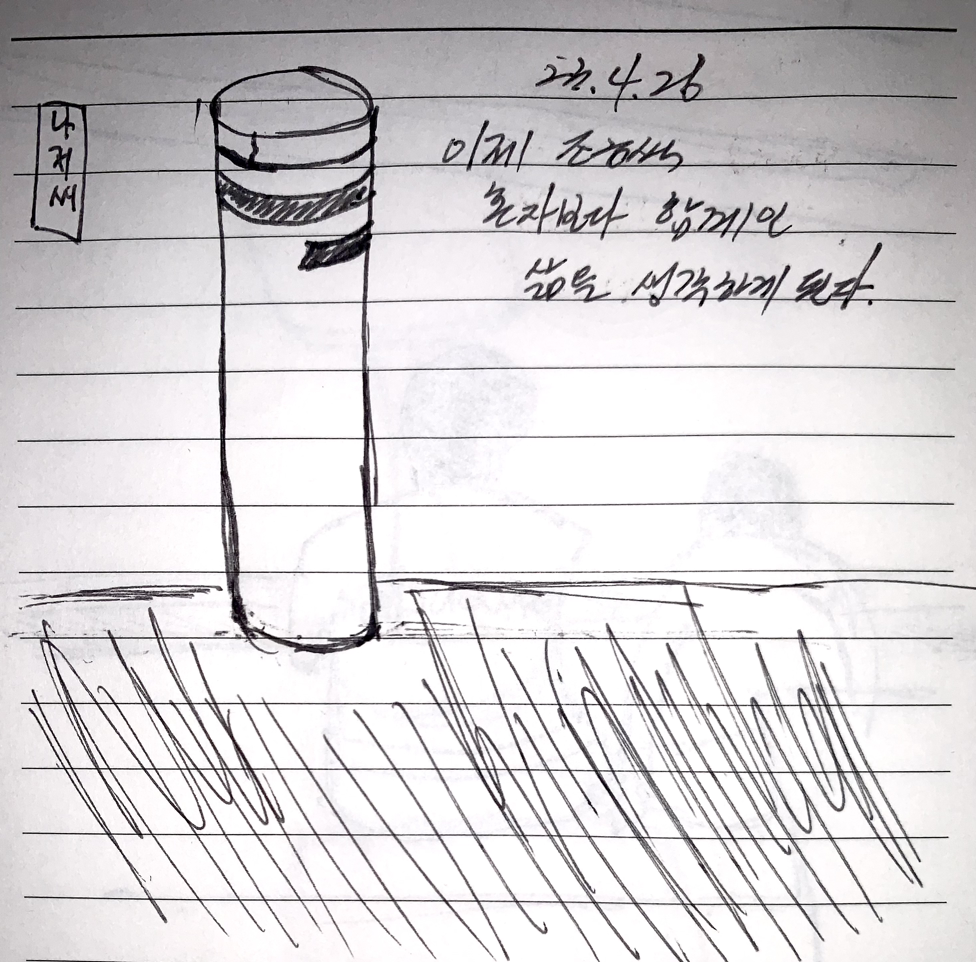 나
제
쌔
23.4.26
이제 조금씩
혼자보다 함께인
삶을 생각하게 된다.